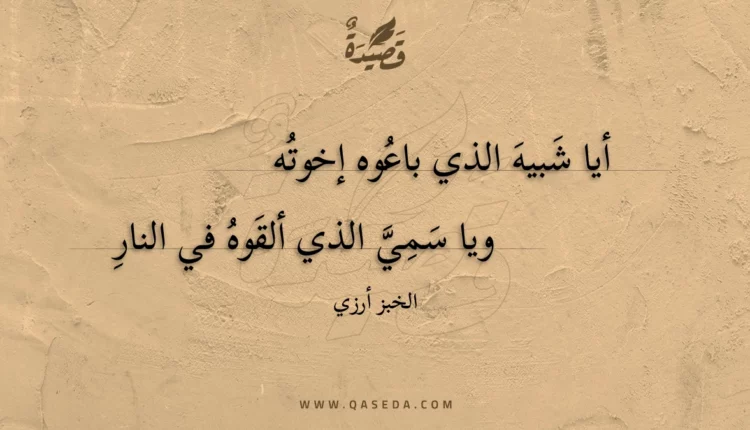 قَصِيدَةٌ
أيا شَبيهَ الذي باعُوه إخوتُه
ويا سَمِيَّ الذي ألقَوهُ في النارِ
الخبز أرزي
WWW.QASEDA.COM